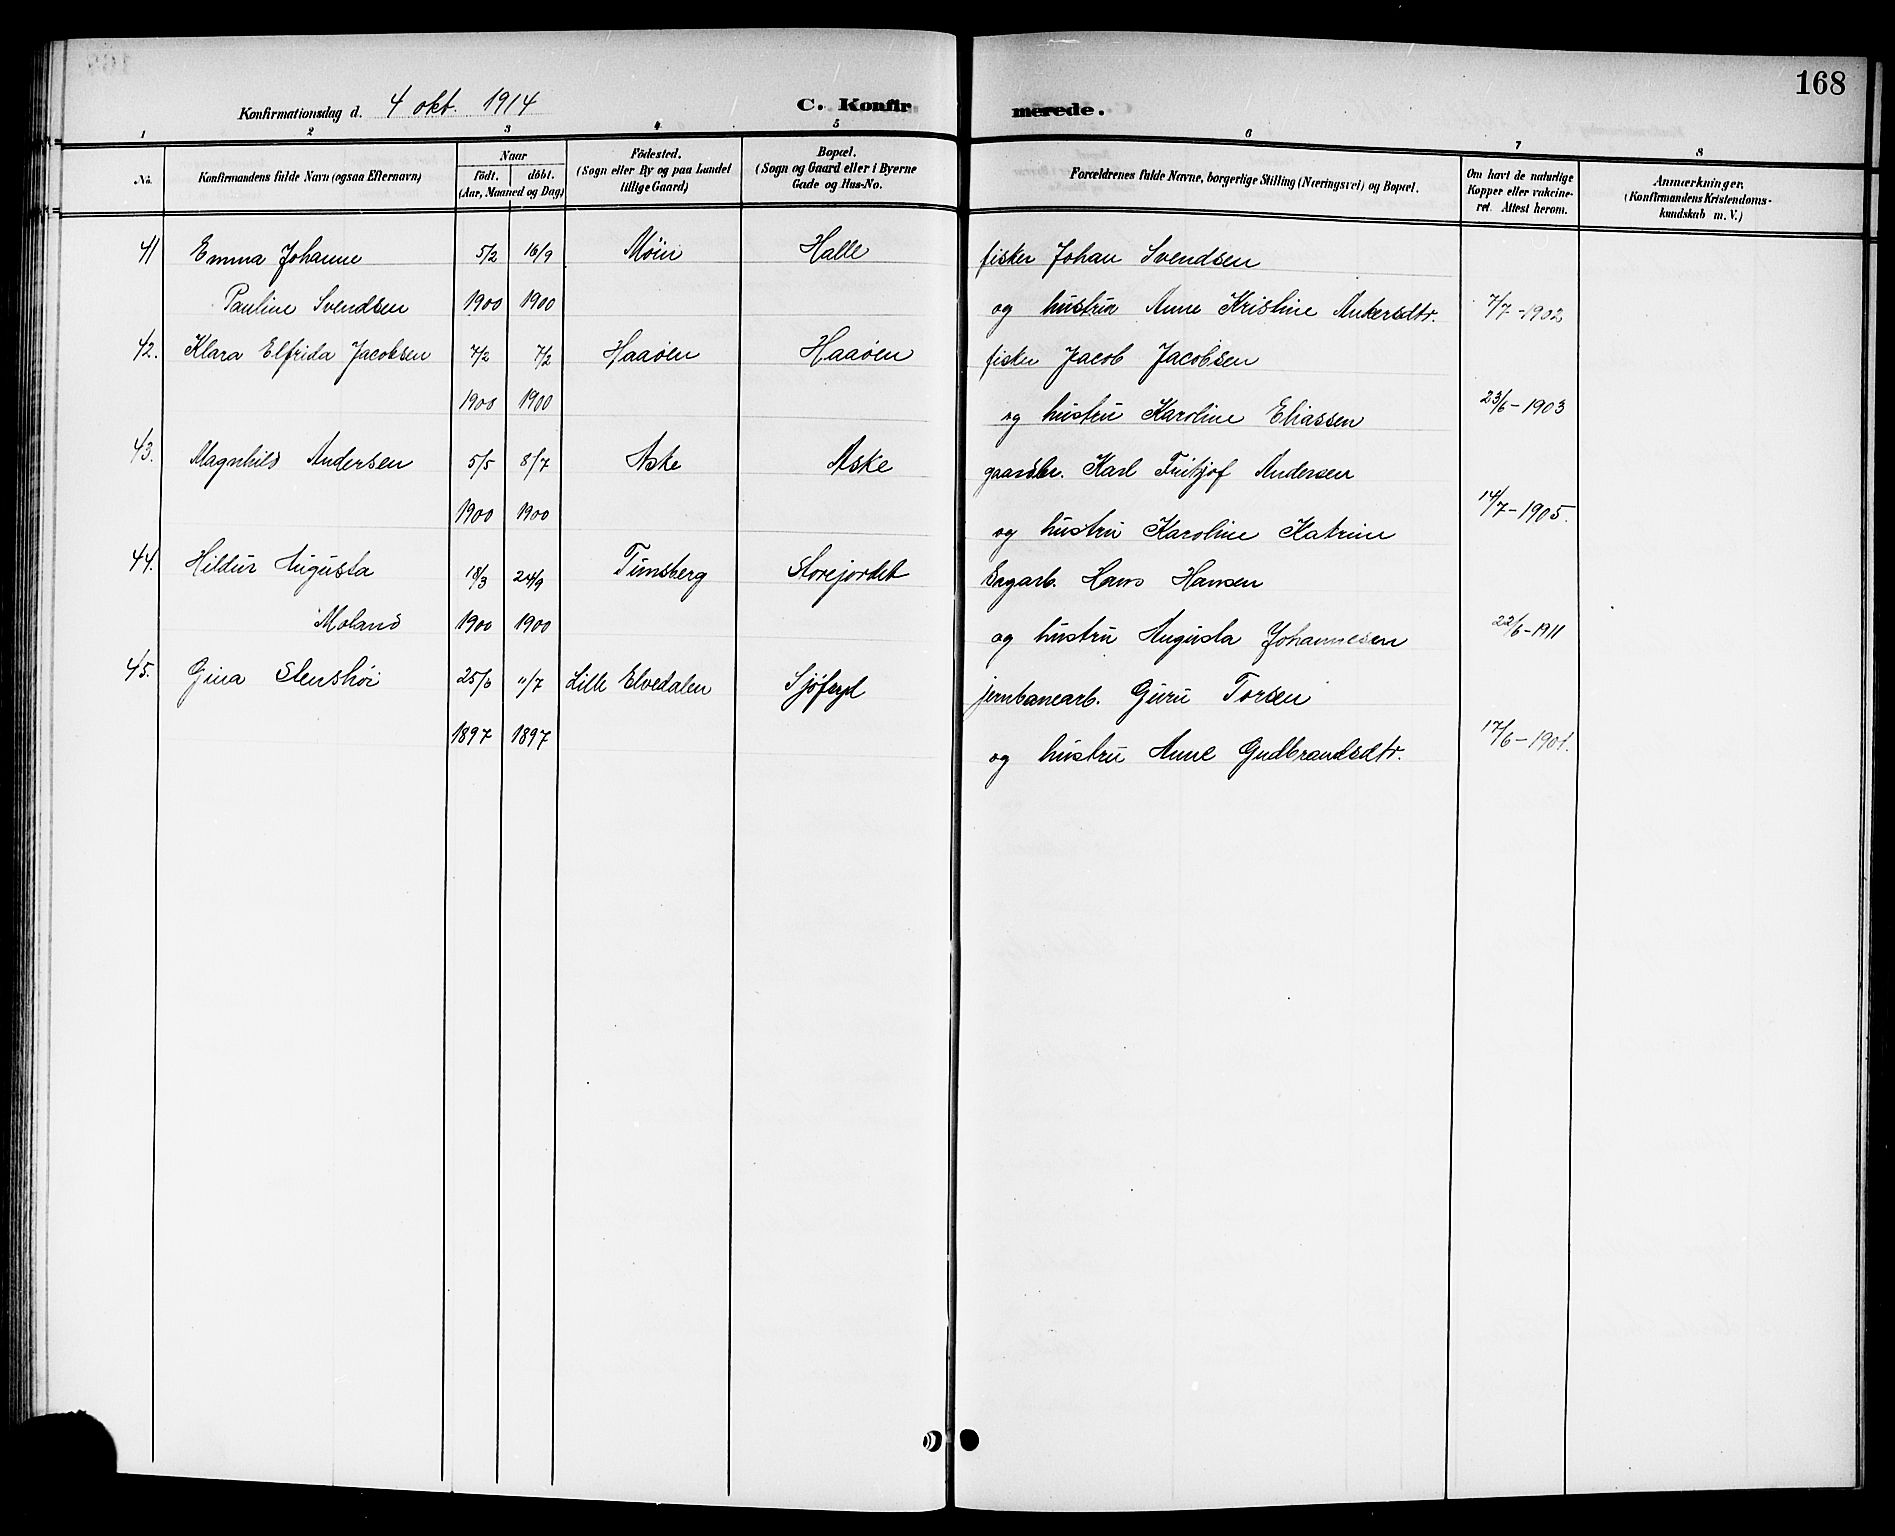 168
Konfirmationsdag d. 4 okt. 1914 C. Konfirmerede.
1 2 3 4 5 6 7 8
No.
Konfirmandens fulde Navn (ogsaa Efternavn)
Naar
födt. döbt.
(Aar, Maaned og Dag)
Födested.
(Sogn eller By og paa Landet
tillige Gaard)
Bopæl.
(Sogn og Gaard eller i Byerne
Gade og Hus-No.
Forældrenes fulde Navne, borgerlige Stilling (Næringsvei) og Bopæl.
Om havt de naturlige
Kopper eller vakcine-
ret. Attest herom.
Anmærkninger.
(Konfirmandens Kristendoms-
kundskab m. V.)
41 Emma Johanne 5/2 16/9 Möin Halle fisker Johan Svendsen
Pauline Svendsen 1900 1900 og hustru Anne Kristine Ankersdtr. 7/7-1902
42. Klara Elfrida Jacobsen 7/2 7/2 Haaöen Haaöen fisker Jacob Jacobsen
1900 1900 og hustru Karoline Eliassen 23/6-1903
43. Magnhild Andersen 5/5 8/7 Aske Aske gaardbr. Karl Fritjof Andersen
1900 1900 og hustru Karoline Katrine 14/7-1905.
44. Hildur Augusta 18/3 24/9 Tunsberg Storejordet Sagarb. Hans Hansen
Moland 1900 1900 og hustru Augusta Johannesen 22/6-1911
45. Gina Stenshöi 25/6 11/7 Lille Elvedalen Sjöfryd jernbanearb. Guru Torsen
1897 1897 og hustru Anne Gudbrandsdtr. 17/6-1901.